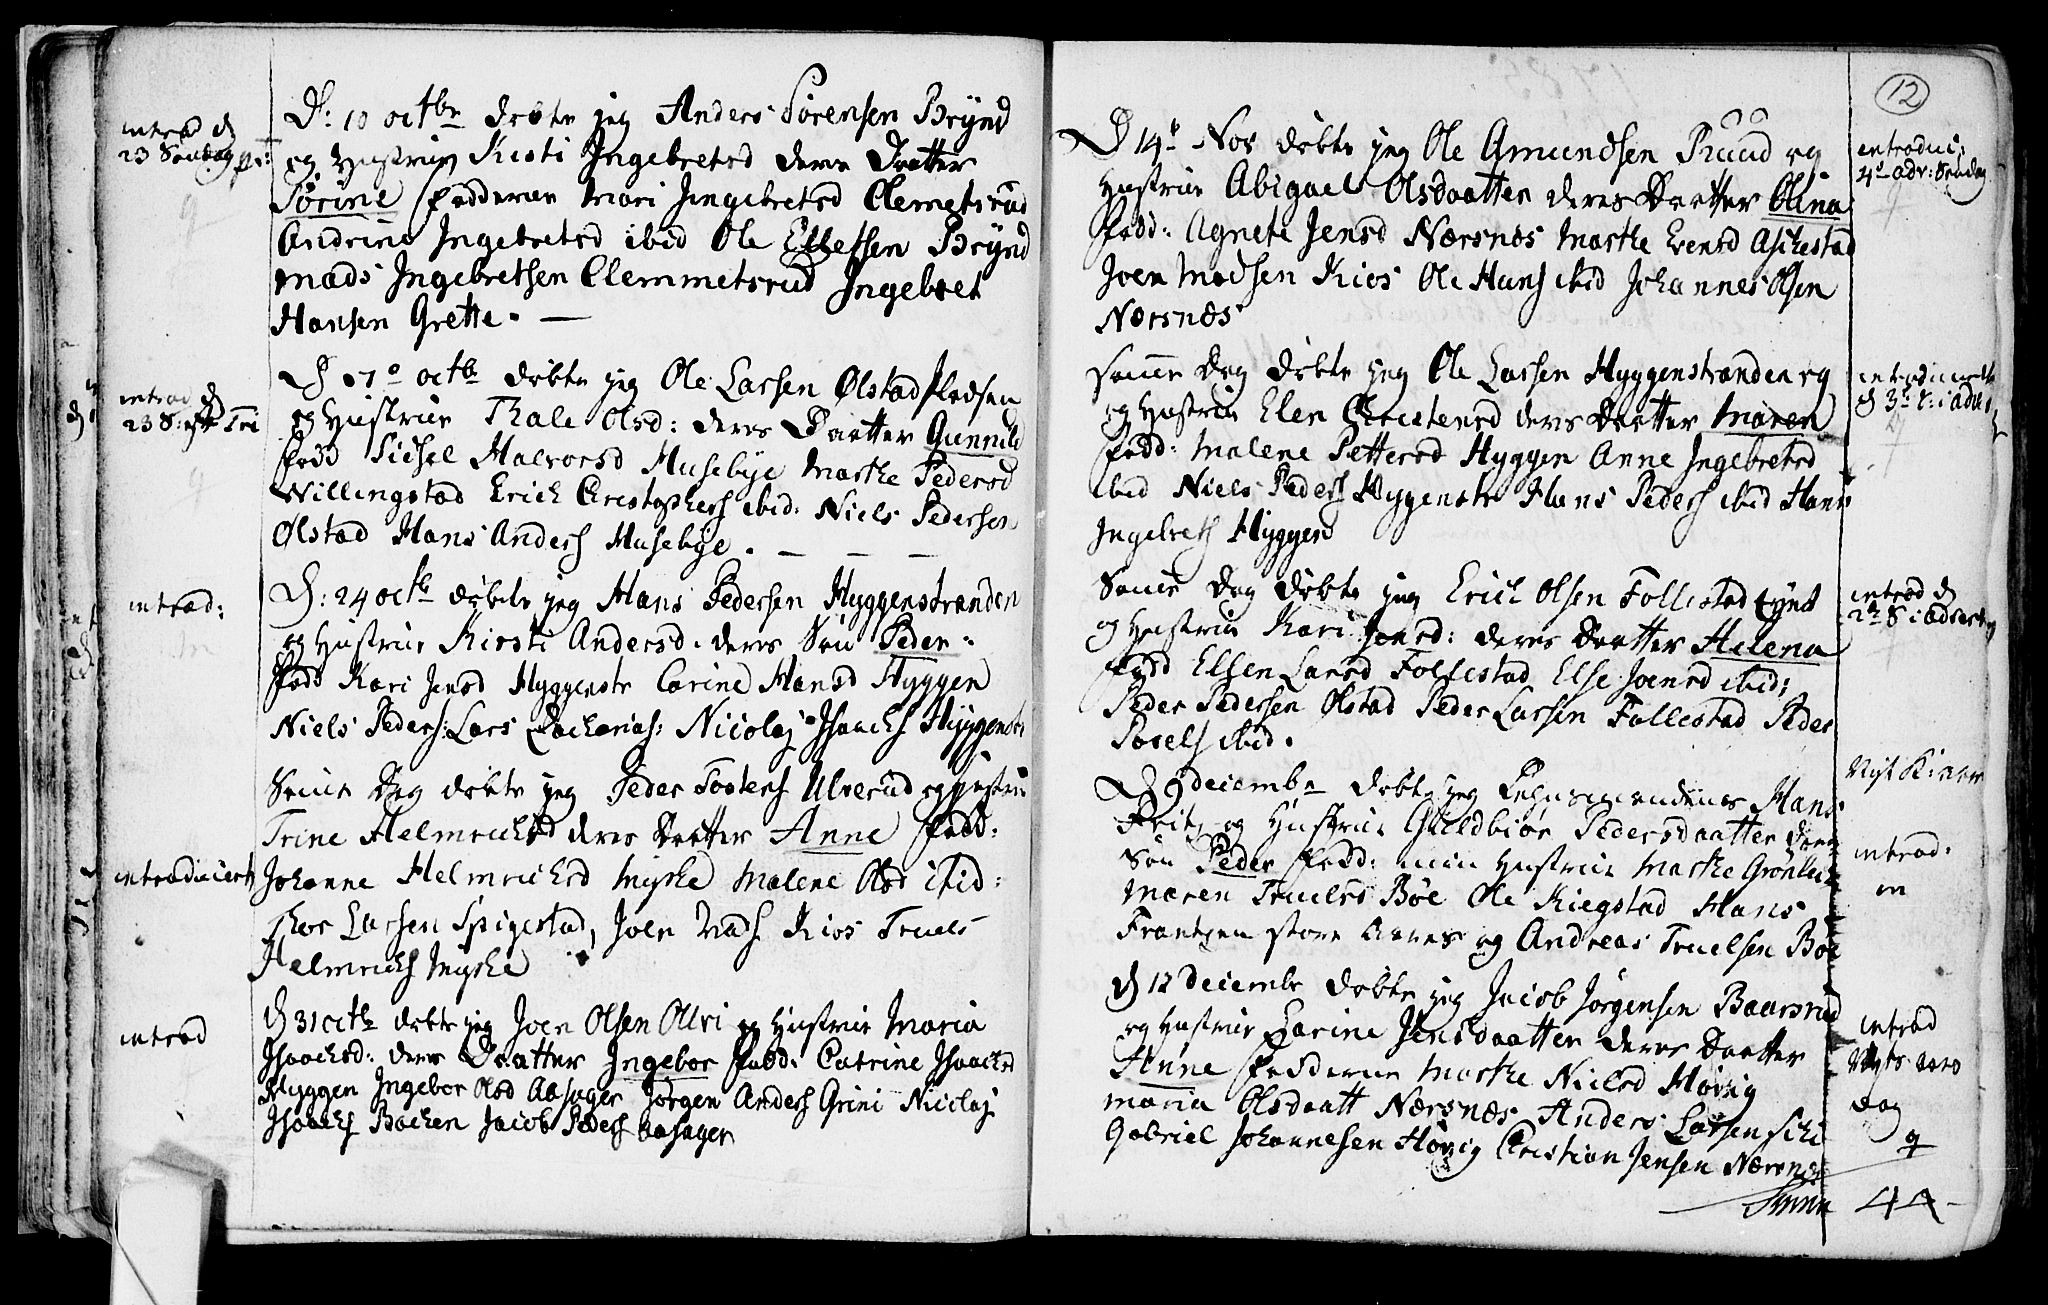 introd d
23 Søndag p:
D: 10 octbr døbte jeg Anders Sørensen Brÿnd
og Hustrue Kisti Ingebretsd deres Daatter
Sørine Fadderne Mari Jngebretsd Clemetsrud
Andrine Ingebretsd ibid Ole Ellefsen Brÿnd
Mads Ingebretsen Clemmetsrud Ingebret
Hansen Grette. —
introd d
23 S: eft Tri
D 17 octb døbte jeg Ole Larsen Ølstad
og Hustrue Thale Olsd: deres Daatter Gunnild
Fadd Sidsel Halvorsd Musebÿe Marthe Pedersd
Willingstad Erich Christophers ibid: Niels Pedersen
Ølstad Hans Anders Musebÿe. — — —
introd:
D: 24 octb døbte jeg Hans Pedersen Hyggenstranden
og Hustrue Kirsti Andersd. deres Søn Peder.
Fadd Kari Jensd Hyggenstr Carine Hansd Hyggen
Niels Peders: Lars Zacharias: Nicolaj Isaachs Hyggenstr
Samme Dag døbte jeg Peder Tostens Ulverud og Hustrue
Trine Helmrichsd deres Daatter Anne Fadd:
introducert
Johanne Helmrichsd Myhre Malene Olsd ibid:
Thor Larsen Spigestad, Joen Mads Kios Truels
Helmrichs Myhre
introd
D 31 octb døbte jeg Joen Olsen Ollri og Hustrue Maria
Isaachsd: deres Daatter Ingebor Fadd: Catrine Isaachsd
Hyggen Ingebor Olsd Aasager Jørgen Anders Grini Nicolaj
Isaachs Bachen Jacob Peders Aasager
12
D 14 Nov døbte jeg Ole Amundsen Ruud og
Hustrue Abigael Olsdaatter deres Daatter Olina
Fadd: Agnete Jensd Nærsnæs Marthe Evensd Aschestad
Joen Madsen Kios Ole Hans ibid Johannes Olsen
Nærsnæs
introduc:
4 adv: Søndag
Samme Dag døbte jeg Ole Larsen Hyggenstranden og
og Hustrue Elen Christensd deres Daatter Maren
Fadd: Malene Pettersd Hyggen Anne Ingebretsd
ibid Niels Peders Hyggenstr Hans Peders ibid Hans
Ingebreths Hyggen
introducert
d 3 S: i adv
Samme Dag døbte jeg Erich Olsen Follestad
og Hustrue Kari Jonsd: deres Daatter Helena
Fadd Elsen Larsd Follestad Else Joensd ibid:
Peder Pedersen Ølstad Peder Larsen Follestad Peder
Povels ibid.
introd d
2 S i advent
D 9 Decembr døbte jeg Lehnsmandens Hans
Frit og Hustrue Guldbiør Pedersdaatter deres
Søn Peder Fadd: min Hustrue Marthe
Maren Truelsd Bøe Ole Kiegstad Hans
Frantzen store og Andreas Truelsen Bøe
introd:
m
D 12 Decembr døbte jeg Jacob Jørgensen Baarsrud
og Hustrue Carine Jensdaatter deres Daatter
Anne Fadderne Marthe Nielsd Høvig
Maria Olsdaatt Nærsnæs Anders Larsen
Gabriel Johannesen Høvig Christian Jensen Nærsnæs
introd
Nyt aars
dag
Summa 44